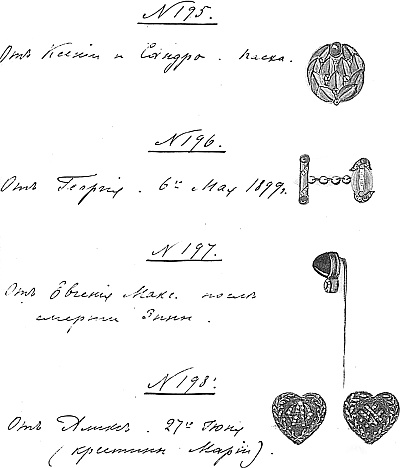 N 195.
Отъ Ксеніи и Сандро. Пасха.
N 196.
Отъ Георгія. 6го Мая 1899г.
N 197.
Отъ Евгенія Макс. послѣ
смерти Зины.
N 198.
Отъ Аликсъ. 27го Іюня
(крестины Маріи).